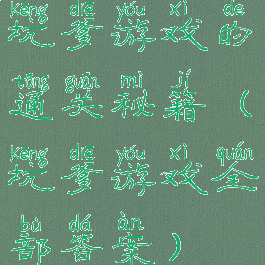 kēng diē yóu xì de
坑爹游戏的
tōng guān mì jí
通关秘籍(
kēng diē yóu xì quán
坑爹游戏全
bù dá àn
部答案)